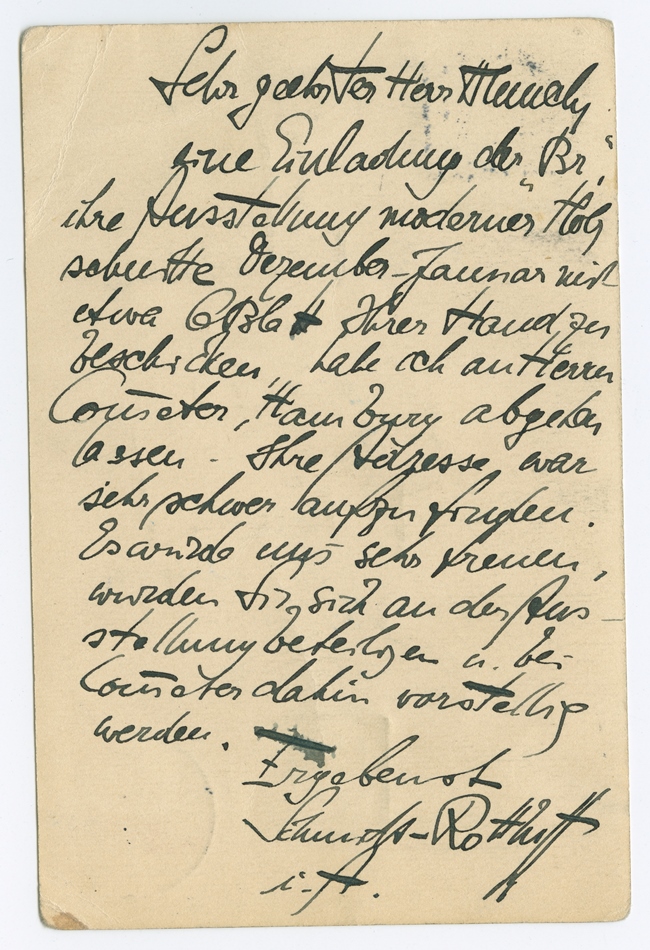 Sehr geehrter Herr Munch,
eine Einladung der "Br.",
ihre Ausstellung moderner Holz
schnitte Dezember-Januar mit
etwa 6 Blatt Ihrer Hand zu
beschicken, habe ich an Herrn
Commeter, Hamburg abgehen
lassen. Ihre Adresse war
sehr schwer aufzufinden.
Es würde uns sehr freuen,
würden Sie sich an der Aus-
stellung beteiligen u. bei
Commeter dahin vorstellig
werden.
Ergebenst
Schmidt-Rottluff
i. A.